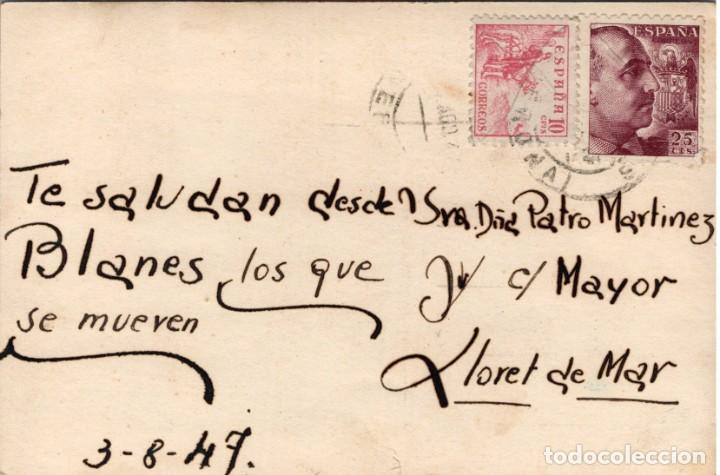 ESPAÑA 10
CORREOS CTS
ESPAÑA
25
CTS
Te saludan desde
Blanes los que
se mueven
3-8-47.
Sra. Dña Patro Martinez
c/ Mayor
Lloret de Mar
todocoleccion